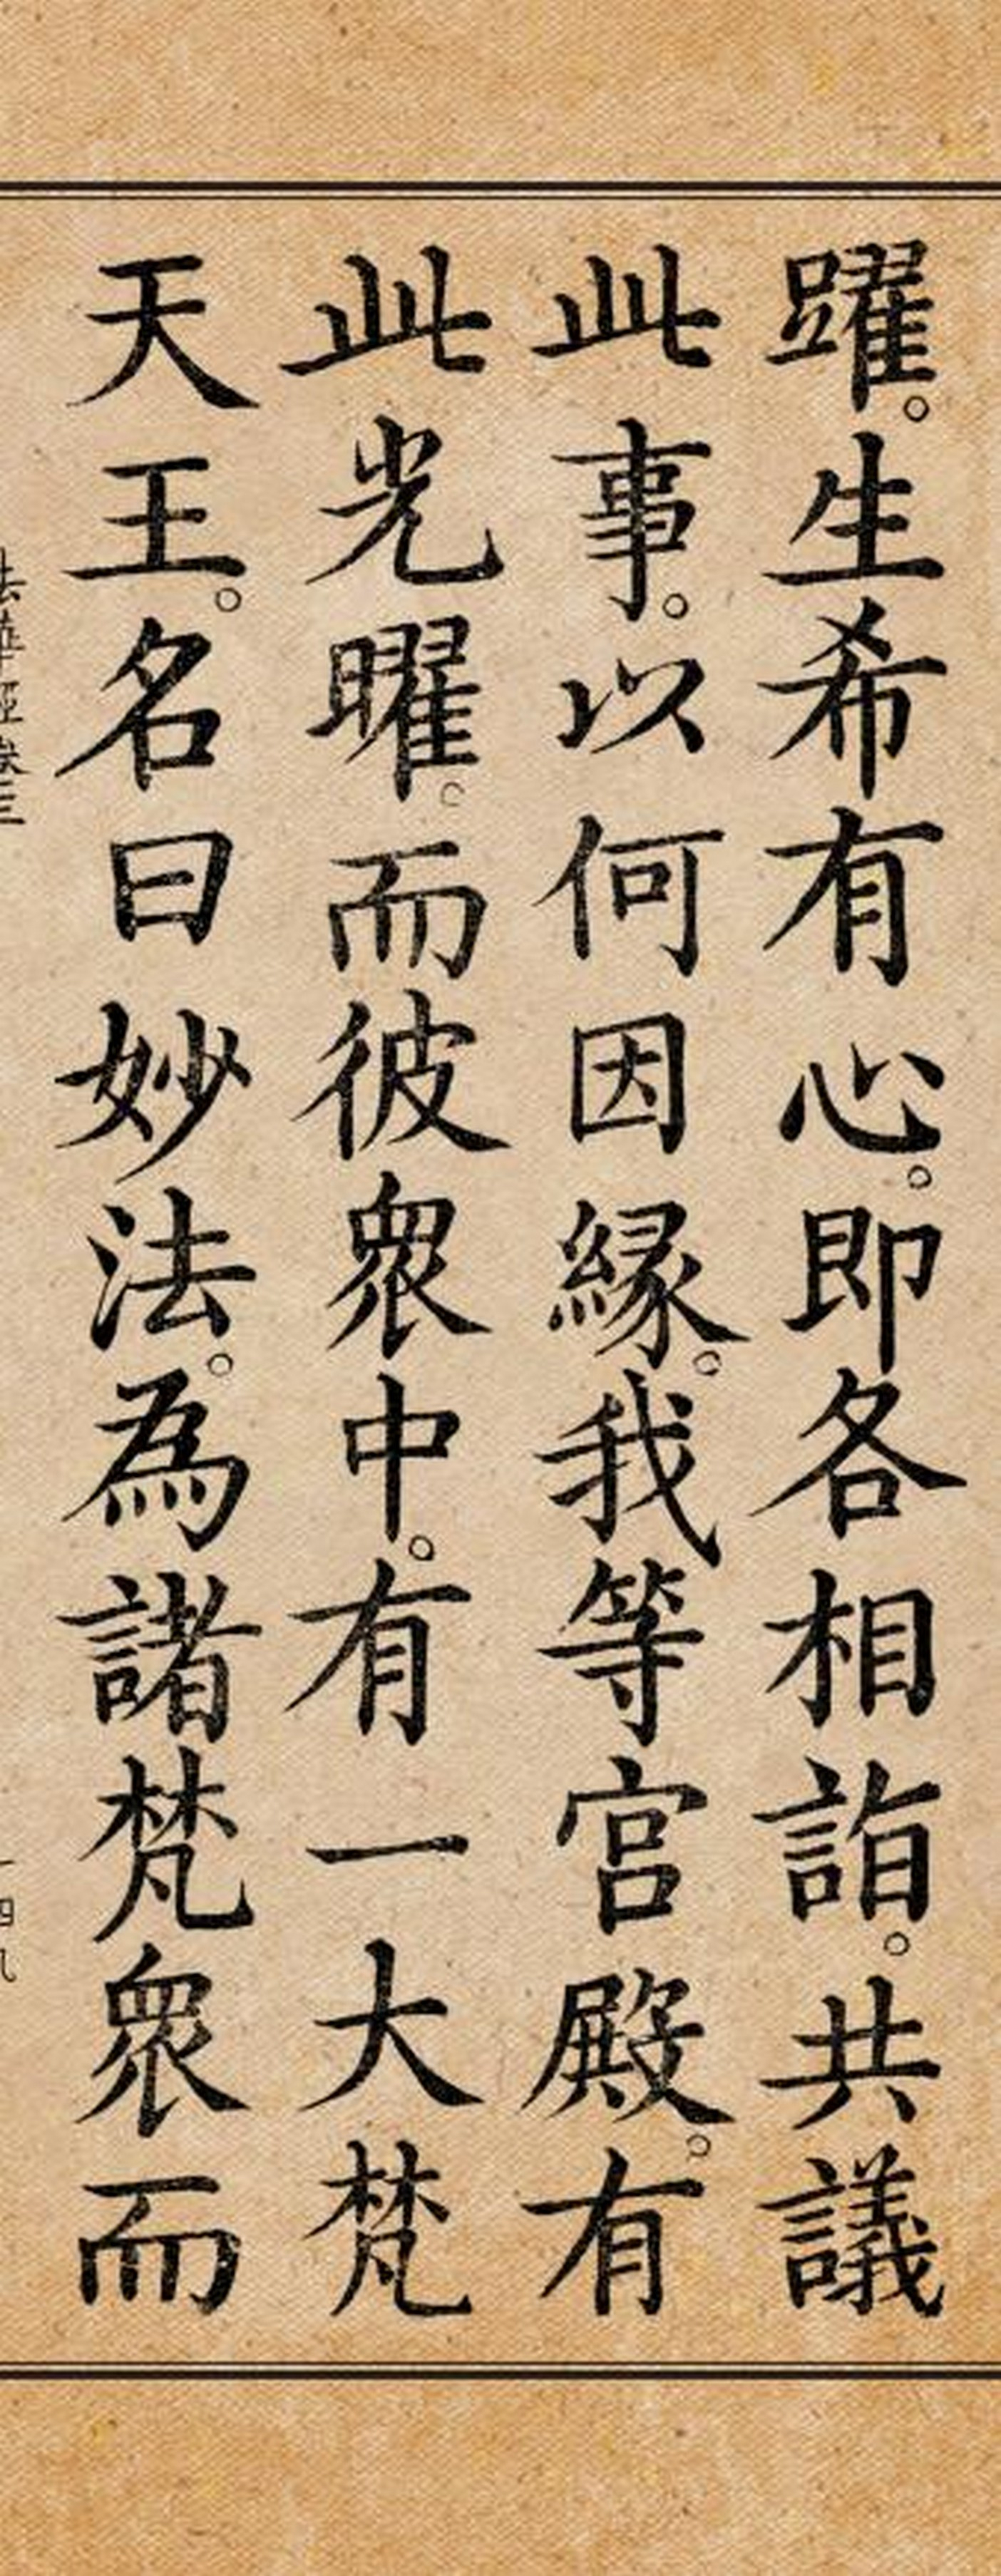 躍。生希有心。即各相詣。共議
此事。以何因緣。我等宮殿。有
此光曜。而彼眾中。有一大梵
天王。名曰妙法。為諸梵眾而
法華經卷三
一四九